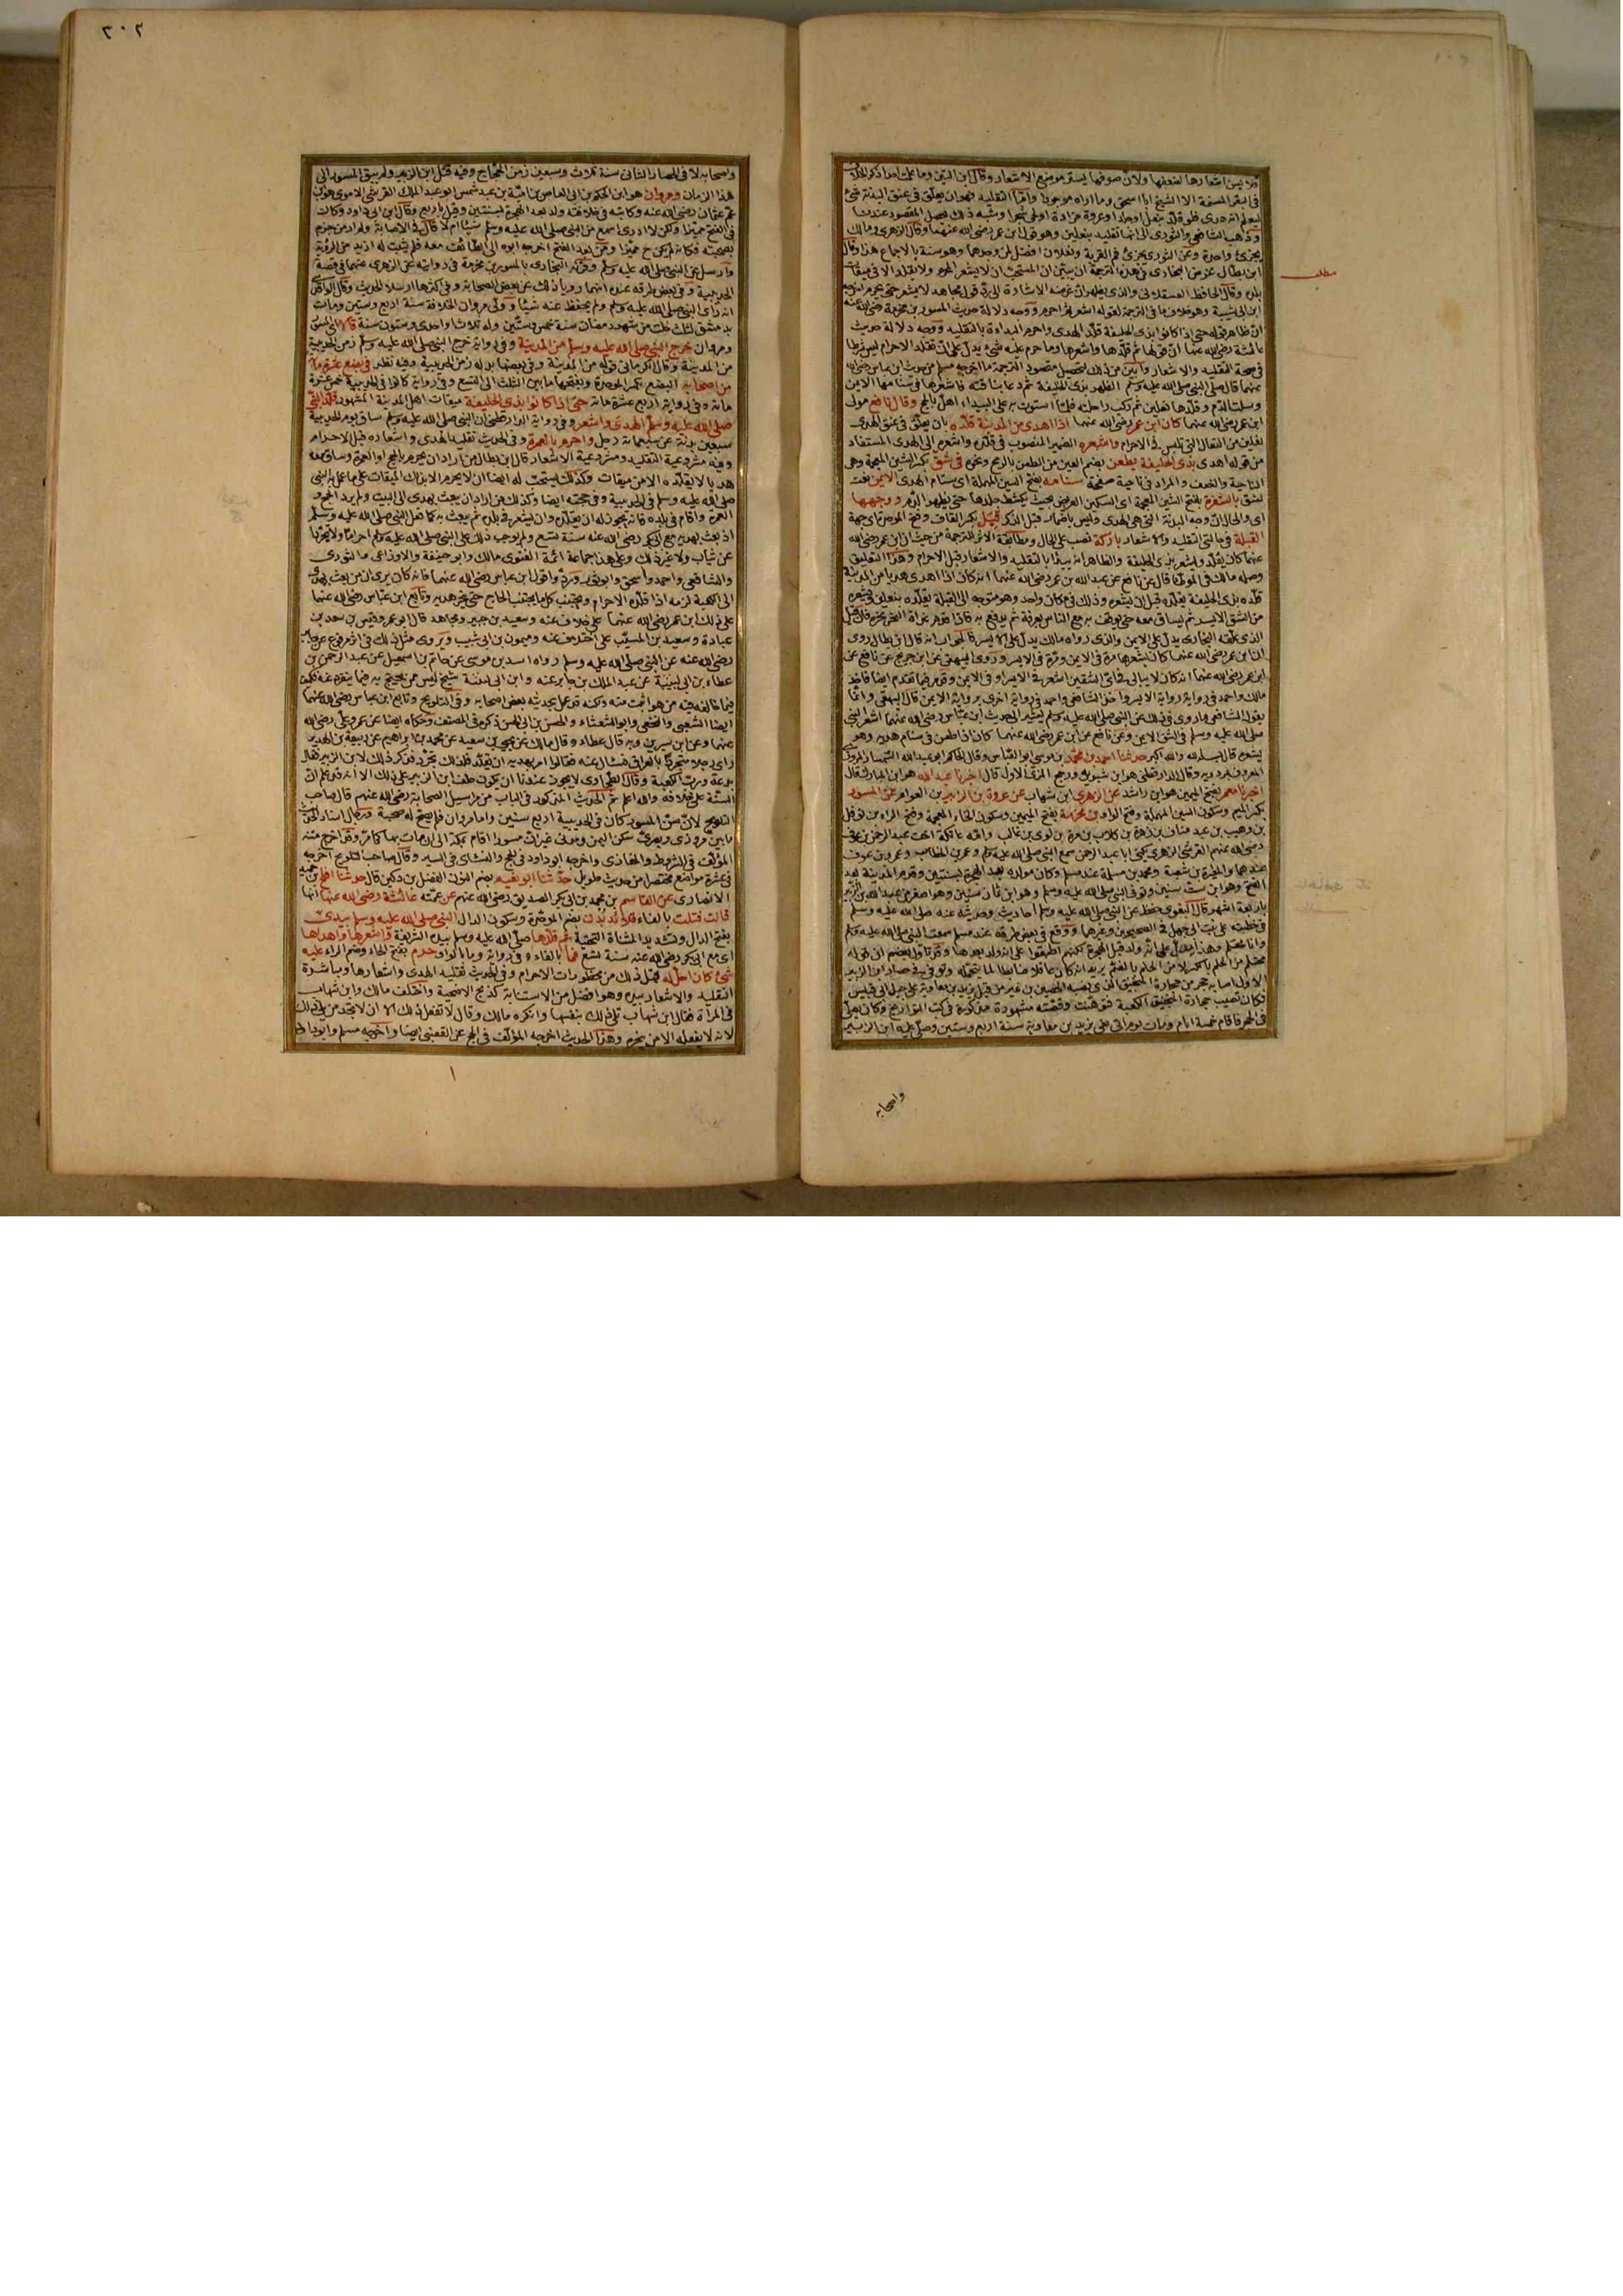 فلا يسن اشعارها لضعفها ولان صوفها يستر موضع الاشعار وقال ابن التين وما علمت احدا ذكر الخلاف
في البقر المسنمة الا الشيخ ابا اسحق وما اراه موجودا واما التقليد فهو ان يعلق في عنق البدنة شئ
ليعلم انه هدى
وذهب الشافعي والثوري الى انها تقليد بنعلين وهو قول ابن عمر رضى الله عنهما وقال الزهري ومالك
يجزئ واحدة وعن الثوري يجزئ فم القربة ونعلان افضل لمن وجدهما
ابن بطال غرض البخاري من هذه الترجمة ان يبين ان المستحب ان لا يشعر المحرم ولا يقلد الا في ميقات
بلده وقال الحافظ العسقلاني والذى يظهر ان غرضه الاشارة الى رد قول مجاهد لا يشعر حتى يحرم اخرجه
ابن ابى شيبة وهو خلاف ما في الترجمة لقوله اشعر ثم احرم ووجه دلالة حديث المسور بن مخرمة رضى الله عنه
ان ظاهر قوله حتى اذا كانوا بذى الحليفة قلد الهدى واحرم البداءة بالتقليد ووجه دلالة حديث
عائشة رضى الله عنها ان قولها ثم قلدها واشعرها وما حرم عليه شئ يدل على ان تقدم الاحرام ليس شرطا
في صحة التقليد والاشعار وابين من ذلك لتحصيل مقصود الترجمة ما اخرجه مسلم من حديث ابن عباس رضى الله
عنهما قال صلى النبي صلى الله عليه وسلم الظهر بذى الحليفة ثم دعا بناقته فاشعرها في سنامها الايمن
وسلت الدم وقلدها نعلين ثم ركب راحلته فلما استوت به على البيداء اهل بالحج وقال نافع مولى
ابن عمر رضى الله عنهما كان ابن عمر رضى الله عنهما اذا اهدى من المدينة قلده بان يعلق في عنق الهدى
نعلين من النعال التي تلبس في الاحرام واشعره الضمير المنصوب في قلده واشعره الى الهدى المستفاد
من قوله اهدى بذى الحليفة يطعن بضم العين من الطعن بالرمح ونحوه في شق بكسر الشين المعجمة وهى
الناحية والنصف والمراد في ناحية صفحة سنامه بفتح السين المهملة اى سنام الهدى الايمن نعت
لشق بالشفرة بفتح الشين المعجمة اى السكين العريض بحيث يكشط جلدها حتى يظهر الدم ووجهها
اى والحال ان وجه البدنة التي هى الهدى وليس باضمار قبل الذكر قبل بكسر القاف وفتح الموحدة اى جهة
القبلة في حالتى التقليد والاشعار باركة نصب على الحال ومطابقة الاثر للترجمة من حيث ان ابن عمر رضى الله
عنهما كان يقلد ويشعر بذى الحليفة والظاهر انه يبدأ بالتقليد والاشعار قبل الاحرام وهذا التعليق
وصله مالك في الموطأ قال عن نافع عن عبد الله بن عمر رضى الله عنهما انه كان اذا اهدى هديا من المدينة
قلده بذى الحليفة يقلده قبل ان يشعره وذلك في مكان واحد وهو متوجه الى القبلة يقلده بنعلين ويشعره
من الشق الايسر ثم يساق معه حتى يوقف به مع الناس بعرفة ثم يدفع به فاذا قدم غداة النحر نحره
الذى علقه البخاري يدل على الايمن والذى رواه مالك يدل على الايسر فالجواب انه قال ابن بطال روى
ان ابن عمر رضى الله عنهما كان يشعرها مرة في الايمن ومرة في الايسر وروى البيهقي عن ابن جريج عن نافع عن
ابن عمر رضى الله عنهما انه كان لا يبالى في اى الشقين اشعر في الايسر او في الايمن
مالك واحمد في رواية رواية الايسر واخذ الشافعي واحمد في رواية اخرى برواية الايمن قال البيهقي وانما
يقول الشافعي بما روى في ذلك عن النبي صلى الله عليه وسلم يشير الى حديث ابن عباس رضى الله عنهما اشعر النبي
صلى الله عليه وسلم في الشق الايمن وعن نافع عن ابن عمر رضى الله عنهما كان اذا طعن في سنام هديه وهو
يشعره قال بسم الله والله اكبر حدثنا احمد بن محمد بن موسى ابو العباس
المعروف بمردويه وقال الدارقطني هو ابن شبويه ورجح المزى الاول قال اخبرنا عبد الله هو ابن المبارك قال
اخبرنا معمر بفتح الميمين هو ابن راشد عن الزهري ابن شهاب عن عروة بن الزبير بن العوام عن المسور
بكسر الميم وسكون السين المهملة وفتح الواو بن مخرمة بفتح الميمين وسكون الخاء المعجمة وفتح الراء بن نوفل
بن وهيب بن عبد مناف بن زهرة بن كلاب بن مرة بن لوى بن غالب وامه عاتكة اخت عبد الرحمن بن عوف
رضى الله عنهم القرشى الزهري يكنى ابا عبد الرحمن سمع النبي صلى الله عليه وسلم وعمر بن الخطاب وعمرو بن عوف
عندهما والمغيرة بن شعبة ومحمد بن مسلمة عند مسلم وكان مولده بعد الهجرة بسنتين وقدم المدينة بعد
الفتح وهو ابن ست سنين وتوفى النبي صلى الله عليه وسلم وهو ابن ثمان سنين وهو اصغر من عبد الله بن الزبير
باربعة اشهر قال البغوى حفظ عن النبي صلى الله عليه وسلم احاديث وحديثه عنه صلى الله عليه وسلم
في خطبته على بنت ابى جهل في الصحيحين وغيرهما ووقع في بعض طرقه عند مسلم سمعت النبي صلى الله عليه وسلم
وانا محتلم وهذا يدل على انه ولد قبل الهجرة لكنهم اطبقوا على انه ولد بعدها وقد تأول بعضهم ان قوله
محتلم من الحلم بالكسر لا من الحلم بالضم يريد انه كان عاقلا ضابطا لما يتحمله وتوفى في حصار ابن الزبير
الاول اصابه حجر من حجارة المنجنيق
فكان تصيب حجارة المنجنيق الكعبة فوهنت وقصته مشهورة مذكورة في كتب التواريخ وكان يصلى
في الحجر فاقام خمسة ايام ومات يوم اتى نعى يزيد بن معاوية سنة اربع وستين وصلى عليه ابن الزبير
واصحابه
مطلب
٣٠٢
واصحابه لا في الحصار الثانى سنة ثلاث وسبعين زمن الحجاج وفيه قتل ابن الزبير ولم يبق المسور الى
هذا الزمان ومروان هو ابن الحكم بن ابى العاص بن امية بن عبد شمس ابو عبد الملك القرشى الاموى هو ابن
عم عثمان رضى الله عنه وكاتبه في خلافته ولد بعد الهجرة بسنتين وقيل باربع وقال ابن ابى داود وكان
في الفتح مميزا ولكن لا ادرى اسمع من النبي صلى الله عليه وسلم شيئا ام لا قال في الاصابة ولم ار من جزم
بصحبته فكانه لم يكن ح مميزا ومن بعد الفتح اخرجه ابوه الى الطائف معه فلم يثبت له ازيد من الرؤية
وارسل عن النبي صلى الله عليه وسلم وقرنه البخاري بالمسور بن مخرمة في روايته عن الزهري عنهما في قصة
الحديبية وفي بعض طرقه عنده انهما رويا ذلك عن بعض الصحابة وفي اكثرها ارسلا الحديث وقال الواقدى
انه رأى النبي صلى الله عليه وسلم ولم يحفظ عنه شيئا وولى مروان الخلافة سنة اربع وستين ومات
بدمشق لثلاث خلت من شهر رمضان سنة خمس وستين وله ثلاث او احدى وستون سنة قالا اى المسور
ومروان خرج النبي صلى الله عليه وسلم من المدينة وفي رواية خرج النبي صلى الله عليه وسلم زمن الحديبية
من المدينة وقال الكرمانى قوله من المدينة وفي بعضها بدله زمن الحديبية وفيه نظر في بضع عشرة مائة
من اصحابه البضع بكسر الموحدة وبفتحها ما بين الثلث الى التسع وفي رواية كانوا في الحديبية خمس عشرة
مائة وفي رواية اربع عشرة مائة حتى اذا كانوا بذى الحليفة ميقات اهل المدينة المشهور قلد النبي
صلى الله عليه وسلم الهدى واشعر وفي رواية الدارقطني ان النبي صلى الله عليه وسلم ساق يوم الحديبية
سبعين بدنة عن سبعمائة رجل واحرم بالعمرة وفي الحديث تقليد الهدى واشعاره قبل الاحرام
وفيه مشروعية التقليد ومشروعية الاشعار قال ابن بطال من اراد ان يحرم بالحج او العمرة وساق معه
هديا لا يقلده الا من ميقات وكذلك يستحب له ايضا ان لا يحرم الا بذلك الميقات على ما عمل به النبي
صلى الله عليه وسلم في الحديبية وفي حجته ايضا وكذلك من اراد ان يبعث بهدى الى البيت ولم يرد الحج و
العمرة واقام في بلده فانه يجوز له ان يقلده وان يشعره في بلده ثم يبعث به كما فعل النبي صلى الله عليه وسلم
اذ بعث بهديه مع ابى بكر رضى الله عنه سنة تسع ولم يوجب ذلك على النبي صلى الله عليه وسلم احراما ولا تجردا
عن ثياب ولا غير ذلك وعلى هذا جماعة ائمة الفتوى مالك وابو حنيفة والاوزاعى والثورى
والشافعي واحمد واسحق وابو ثور وردوا قول ابن عباس رضى الله عنهما فانه كان يرى ان من بعث بهدى
الى الكعبة لزمه اذا قلده الاحرام ويجتنب كل ما يجتنب الحاج حتى ينحر هديه وتابع ابن عباس رضى الله عنهما
على ذلك ابن عمر رضى الله عنهما على خلاف عنه وسعيد بن جبير ومجاهد قال ابو عمر وقيس بن سعد بن
عبادة وسعيد بن المسيب على اختلاف عنه وميمون بن ابى شبيب ويروى مثل ذلك في اثر مرفوع عن جابر
رضى الله عنه عن النبي صلى الله عليه وسلم رواه اسد بن موسى عن حاتم بن اسمعيل عن عبد الرحمن بن
عطاء بن ابى لبيبة عن عبد الملك بن جابر عنه وابن ابى لبيبة شيخ ليس ممن يحتج به فيما ينفرد به فكيف
فيما خالفه فيه من هو اثبت منه ولكنه قد عمل بحديثه بعض اصحابه وفي التلويح وتابع ابن عباس رضى الله عنهما
ايضا الشعبي والنخعي وابو الشعثاء والحسن بن ابى الحسن ذكره في المصنف وحكاه ايضا عن عمر وعلى رضى الله
عنهما وعن ابن سيرين وبه قال عطاء وقال مالك عن يحيى بن سعيد عن محمد بن ابراهيم عن ربيعة بن الهدير
رأى رجلا متجردا بالعراق فسأل عنه فقالوا امر بهديه ان يقلد فلذلك تجرد فذكر ذلك لابن الزبير فقال
بدعة ورب الكعبة وقال الطحاوى لا يجوز عندنا ان يكون حلف ابن الزبير على ذلك الا انه قد علم ان
السنة على خلافه والله اعلم ثم الحديث المذكور في الباب من مراسيل الصحابة رضى الله عنهم قال صاحب
التلويح لان سن المسور كان في الحديبية اربع سنين واما مروان فلم يصح له صحبة ورجال اسناد الحديث
ما بين مروزى وبصرى سكن اليمن ومدنى غير ان مسورا اقام بمكة الى ان مات بها كما مر وقد اخرج متنه
المؤلف في الشروط والمغازى واخرجه ابو داود في الحج والنسائى في السير وقال صاحب التلويح اخرجه
في عشرة مواضع مختصرا من حديث طويل حدثنا ابو نعيم بضم النون الفضل بن دكين قال حدثنا افلح بن حميد
الانصارى عن القاسم بن محمد بن ابى بكر الصديق رضى الله عنهم عن عمته عائشة رضى الله عنها انها
قالت فتلت بالفاء قلائد بدن بضم الموحدة وسكون الدال النبي صلى الله عليه وسلم بيدى
بفتح الدال وتشديد المثناة التحتية ثم قلدها صلى الله عليه وسلم بيده الشريفة واشعرها واهداها
اى مع ابى بكر رضى الله عنه سنة تسع فما بالفاء وفي رواية وما بالواو حرم بفتح الحاء وضم الراء عليه
شئ كان احل له قبل ذلك من محظورات الاحرام وفي الحديث تقليد الهدى واشعارها ومباشرة
التقليد والاشعار بيده وهو افضل من الاستنابة كذبح الاضحية واختلف مالك وابن شهاب
في المرأة فقال ابن شهاب تلى ذلك بنفسها وانكره مالك وقال لا تفعل ذلك الا ان لا تجد من يلى ذلك
لانه لا يفعله الا من ينحر وهذا الحديث اخرجه المؤلف في الحج عن القعنبى ايضا واخرجه مسلم وابو داود